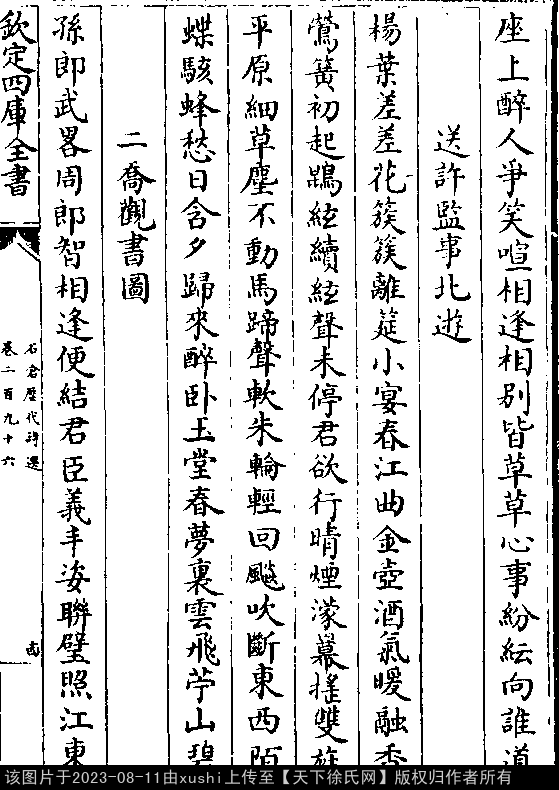 座上醉人爭笑喧相逢相别皆草草心事紛紜向誰道
送許監事北遊
楊葉差差花簇簇離筵小宴春江曲金壺酒氣暖融香
鶯簧初起鵾絃續絃聲未停君欲行晴煙濛幕摇雙旌
平原細草塵不動馬蹄聲軟朱輪輕回飈吹斷東西陌
蝶駭蜂愁日含夕歸來醉卧玉堂春夢裏雲飛苧山碧
二喬觀書圖
孫郎武畧周郎智相逢便結君臣義丰姿聯璧照江東
欽定四庫全書
石倉歷代詩選
卷二百九十六
该图片于2023-08-11由xushi上传至【天下徐氏网】版权归作者所有